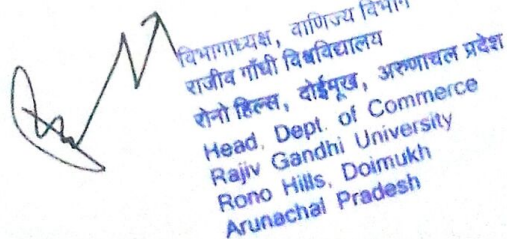 विभागाध्यक्ष, वाणिज्य विभाग
राजीव गाँधी विश्वविद्यालय
रोनो हिल्स, दोईमुख, अरुणाचल प्रदेश
Head, Dept. of Commerce
Rajiv Gandhi University
Rono Hills, Doimukh
Arunachal Pradesh